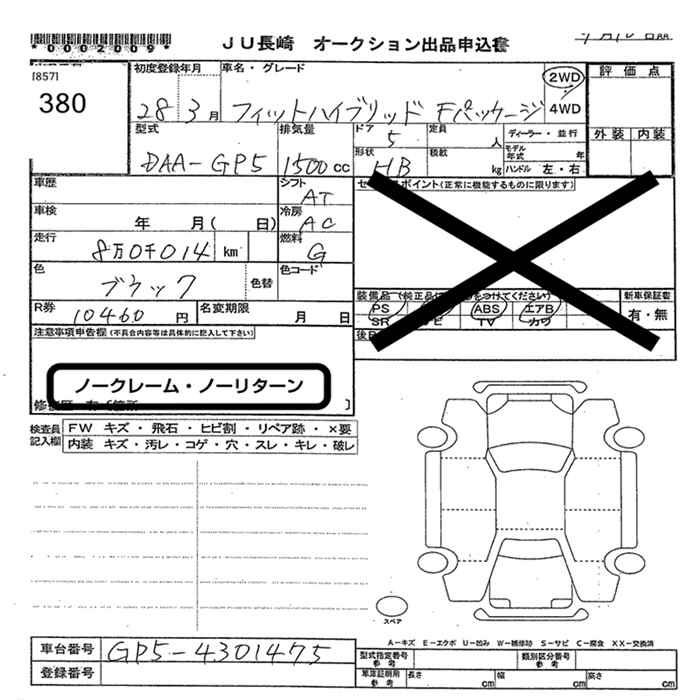 *0002009*
JU長崎 オークション出品申込書
[857]
380
初度登録年月 車名・グレード
28 3月 フィットハイブリッド Fパッケージ
2WD
4WD
評価点
外装 内装
型式 排気量 ドア 定員
DAA-GP5 1500cc 5 人
ディーラー・並行
形状 積数 モデル年式 年
HB kg ハンドル 左・右
車歴 シフト AT
車検 年 月( 日) 冷房 AC
走行 8万0千014 km 燃料 G
色 ブラック 色替 色コード
R券 10460円 名変期限 月 日
ポイント(正常に機能するものに限ります)
装備品(純正品に をつけてください) 新車保証書
PS ABS エアB 有・無
SR TV カワ
注意事項申告欄(不具合内容等は具体的に記入して下さい)
ノークレーム・ノーリターン
検査員記入欄
FW キズ・飛石・ヒビ割・リペア跡・×要
内装 キズ・汚レ・コゲ・穴・スレ・キレ・破レ
スペア
A-キズ E-エクボ U-凹み W-補修跡 S-サビ C-腐食 XX-交換済
車台番号 GP5-4301475
登録番号
型式指定番号 参考 類別区分番号 参考
車庫証明用 参考 長さ cm 幅 cm 高さ cm